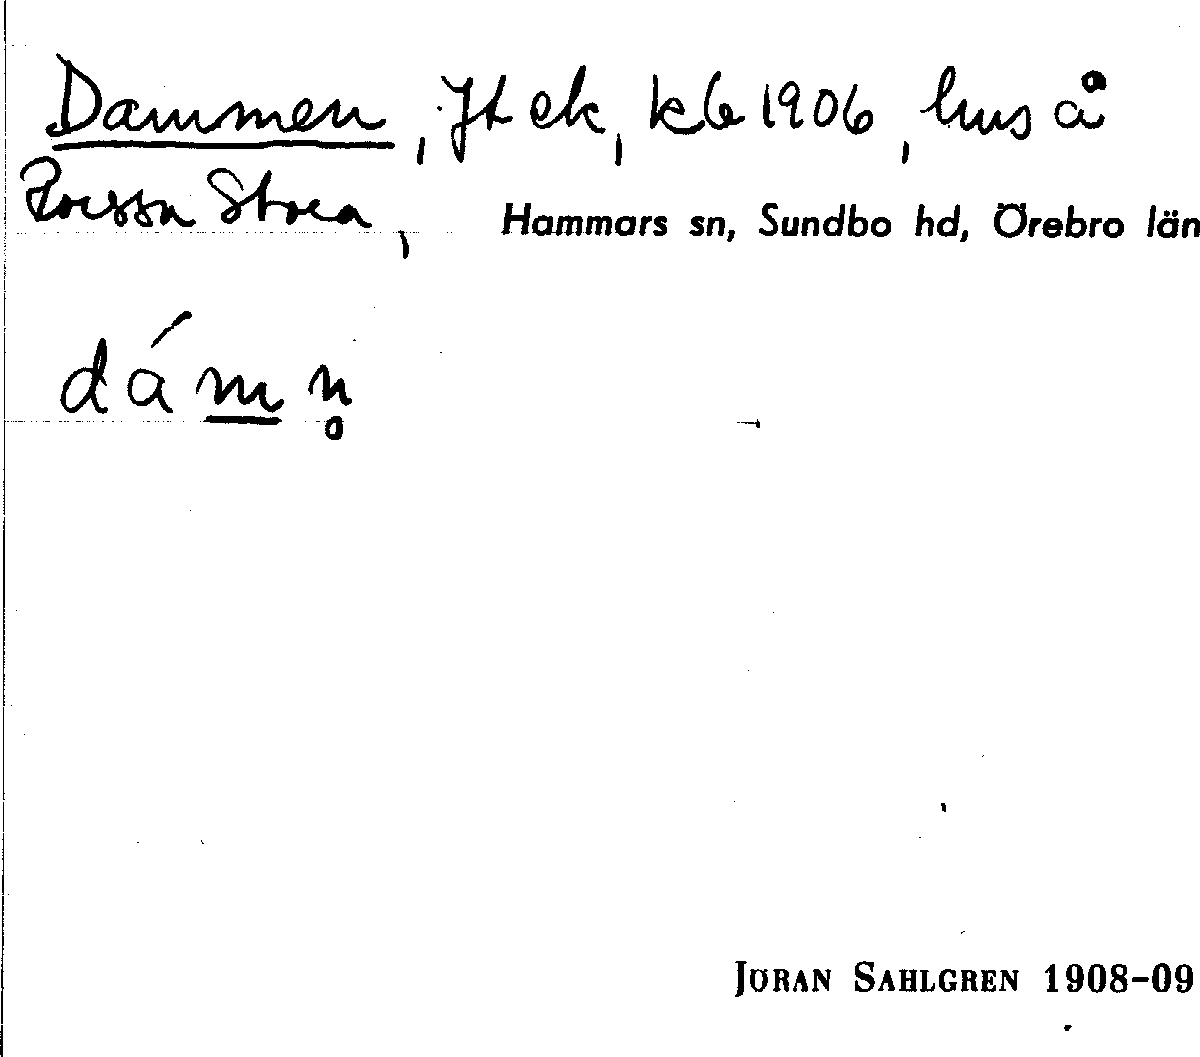 Dammen, Jt ek, kb 1906, hus å
Stora, Hammars sn, Sundbo hd, Örebro län
dámn̥
JÖRAN SAHLGREN 1908-09